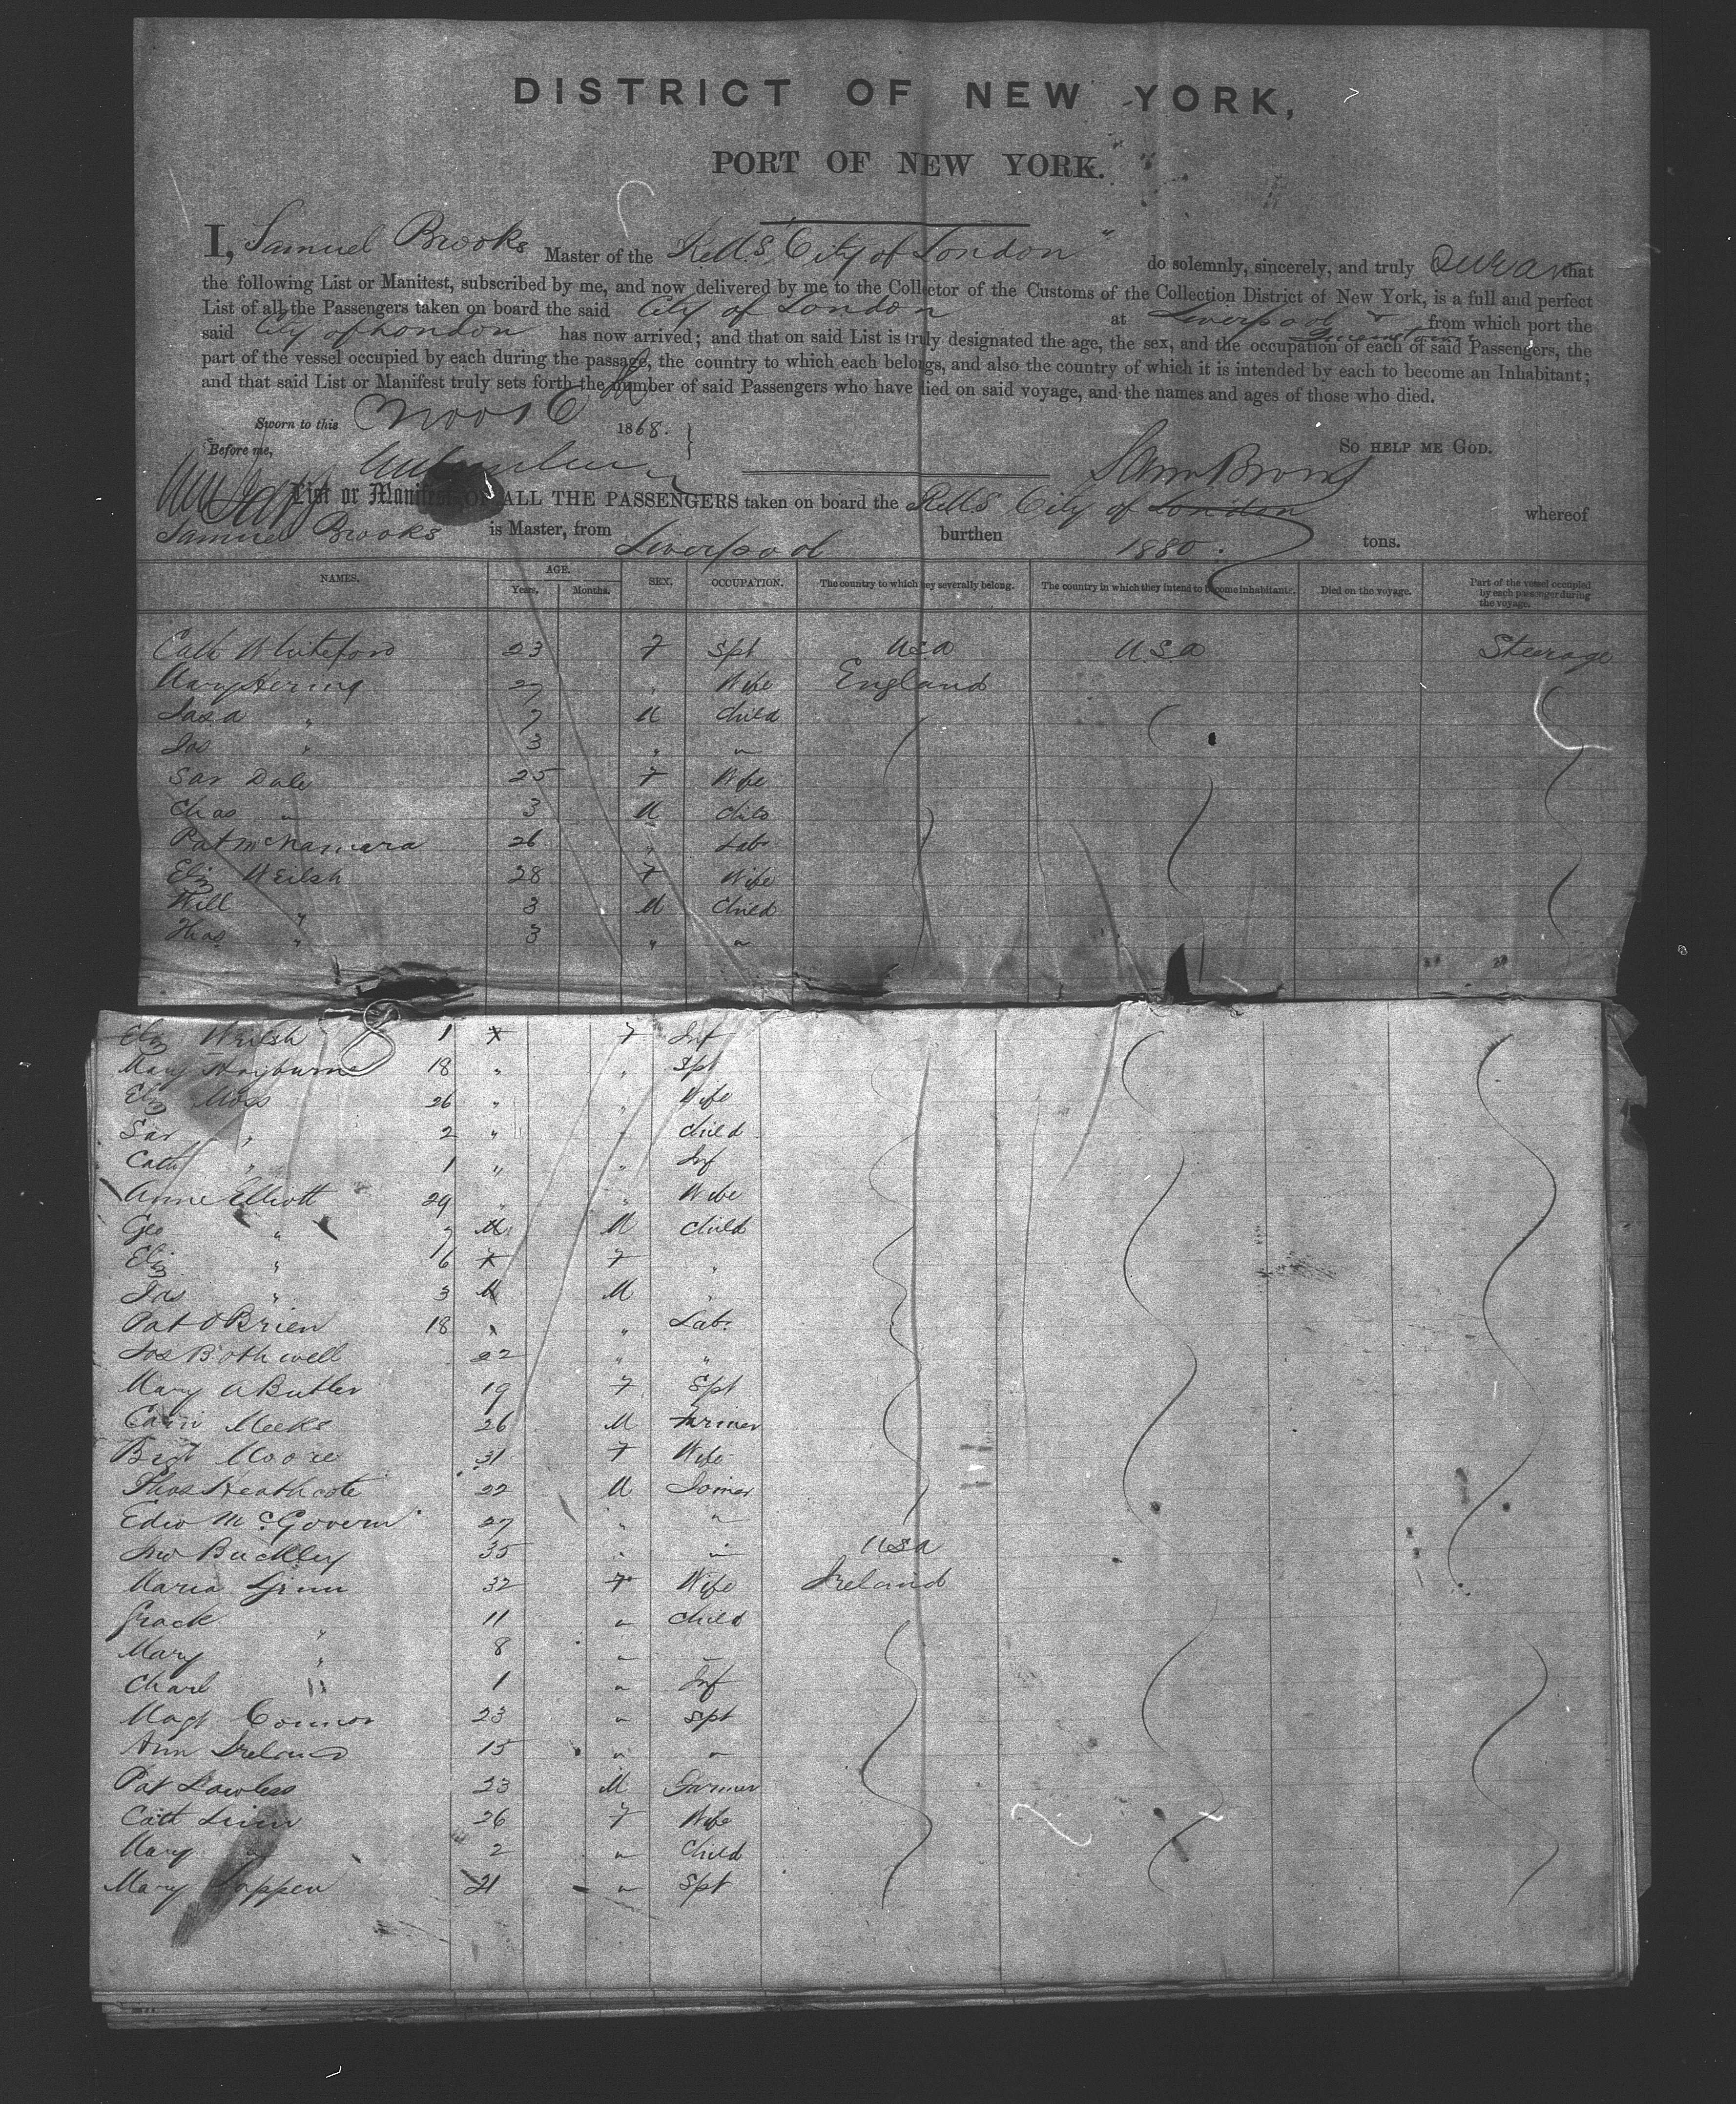 DISTRICT OF NEW YORK,
PORT OF NEW YORK.
I, Samuel Brooks Master of the "RMS City of London" do solemnly, sincerely, and truly swear that
the following List or Manifest, subscribed by me, and now delivered by me to the Collector of the Customs of the Collection District of New York, is a full and perfect
List of all the Passengers taken on board the said City of London at Liverpool & Queenstown from which port the
said City of London has now arrived; and that on said List is truly designated the age, the sex, and the occupation of each of said Passengers, the
part of the vessel occupied by each during the passage, the country to which each belongs, and also the country of which it is intended by each to become an Inhabitant;
and that said List or Manifest truly sets forth the number of said Passengers who have died on said voyage, and the names and ages of those who died.
Sworn to this 1868.
Before me, SO HELP ME GOD.
Sam Brooks
List or Manifest OF ALL THE PASSENGERS taken on board the RMS City of London whereof
Samuel Brooks is Master, from Liverpool burthen 1880. tons.
NAMES. AGE. Years. Months. SEX. OCCUPATION. The country to which they severally belong. The country in which they intend to become inhabitants. Died on the voyage. Part of the vessel occupied by each passenger during the voyage.
Cath Whiteford 23 F Spt USA USA Steerage
Mary Hering 27 " Wife England
Jas A " 7 M Child
Jos " 3 " "
Sar Dale 25 F Wife
Chas " 3 M Child
Pat McNamara 26 " Labr
Eliz Welsh 28 F Wife
Will " 3 M Child
Thos " 3 " "
Eliz Welsh 1 F F Inf
Mary Hayburne 18 " " Spt
Eliz Moss 26 " " Wife
Sar " 2 " " Child
Cath " 1 " " Inf
Anne Elliott 29 " " Wife
Geo " 7 M M Child
Eliz " 6 F F "
Jas " 3 M M "
Pat O'Brien 18 " " Labr
Jos Bothwell 22 " "
Mary A Butler 19 F Spt
Meeks 26 M Farmer
Bigt Moore 31 F Wife
Thos Heathcote 22 M Joiner
Edwd McGovern 27 " "
Jno Buckley 35 " " USA
Maria Ginn 32 F Wife Ireland
Grace " 11 " Child
Mary " 8 " "
Charl " 1 " Inf
Magt Connor 23 " Spt
Ann Ireland 15 " "
Pat Lawless 23 M Farmer
Cath Linn 26 F Wife
Mary " 2 " Child
Mary Lappen 21 " Spt